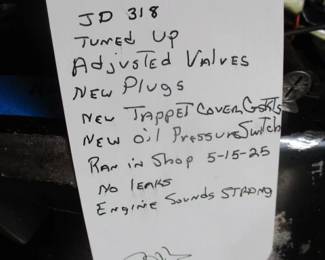 JD 318
Tuned Up
Adjusted Valves
New Plugs
New Trappet Cover Gskts
New oil Pressure Switch
Ran in Shop 5-15-25
No leaks
Engine Sounds STRONG